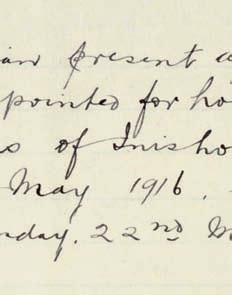 ian present a
pointed for ho
s of Inisho
May 1916.
nday. 22nd M